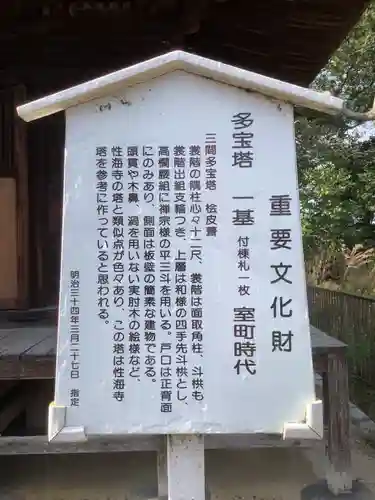 重要文化財
多宝塔　一基　付棟札一枚　室町時代
三間多宝塔　桧皮葺
裳階の隅柱心々十二尺、裳階は面取角柱、斗栱も
裳階出組支輪つき、上層は和様の四手先斗栱とし、
高欄腰組に禅宗様の平三斗を用いる。戸口は正背面
にのみあり、側面は板壁の簡素な建物である。
頭貫や木鼻、渦を用いない実肘木の絵様など、
性海寺の塔と類似点が色々あり、この塔は性海寺
塔を参考に作っていると思われる。
明治三十四年三月二十七日　指定